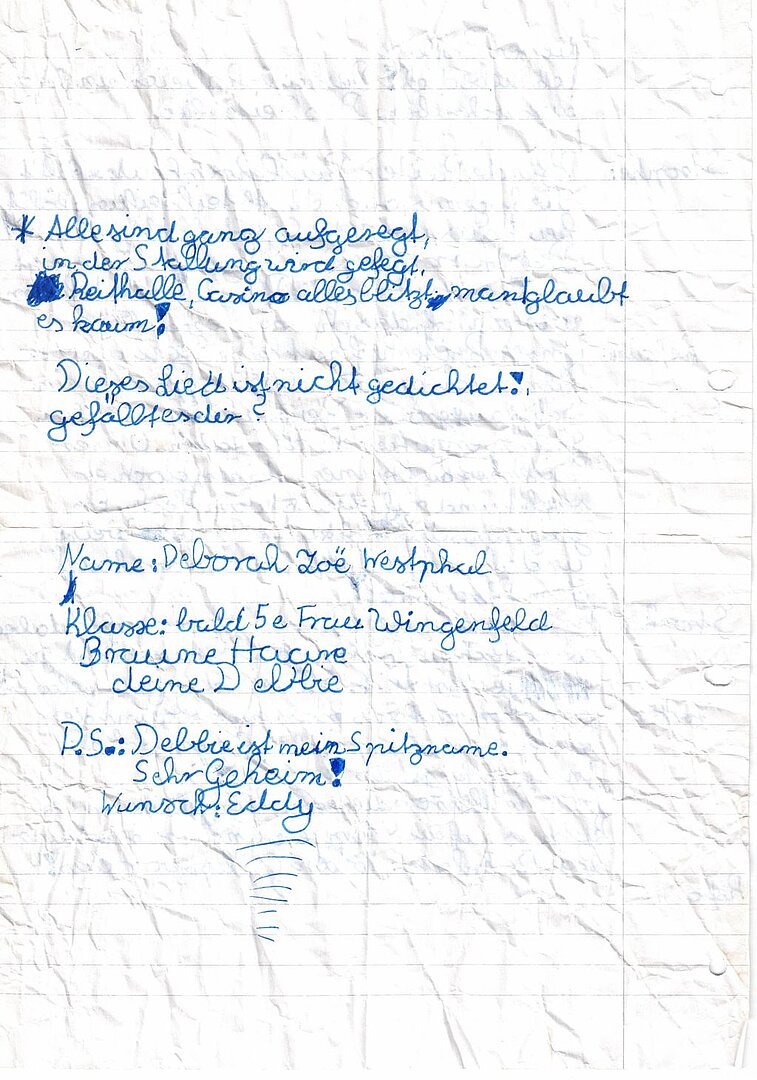 * Alle sind ganz aufgeregt,
in der Stallung wird gefegt.
Reithalle, Casino alles blitzt, man glaubt
es kaum!
Dieses Lied ist nicht gedichtet!,
gefällt es dir?
Name: Deborah Zoë Westphal
Klasse: bald 5e Frau Wingenfeld
Brauune Haare
deine Debbie
P.S.: Debbie ist mein Spitzname.
Sehr Geheim!
Wunsch: Eddy